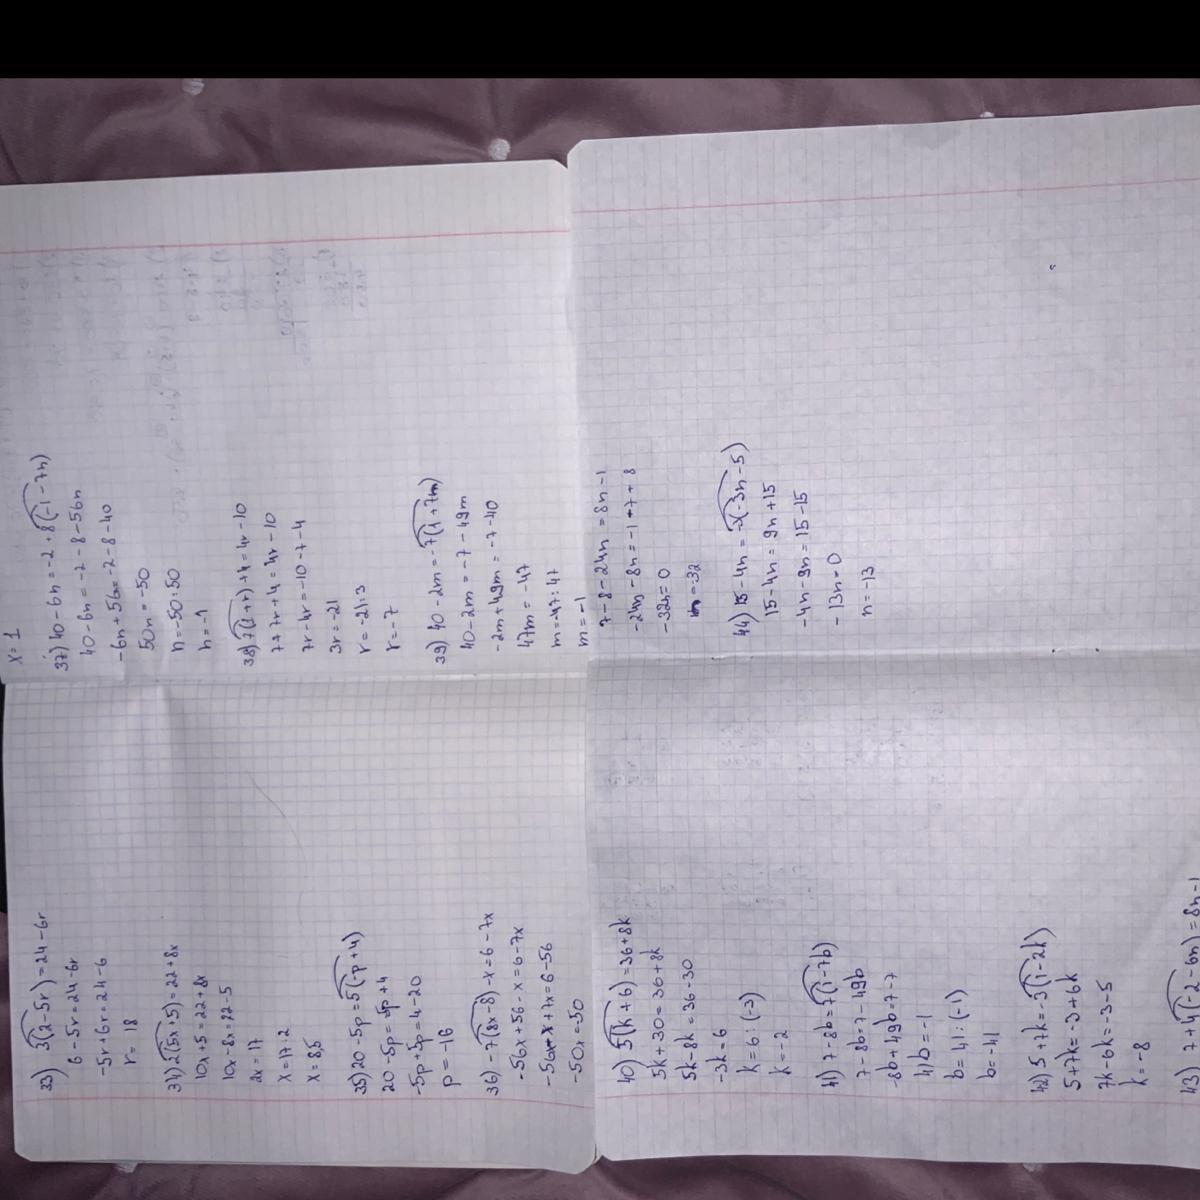 33) 3(2-5r)=24-6r
6-5r=24-6r
-5r+6r=24-6
r=18
34) 2(5x+5)=22+8x
10x+5=22+8x
10x-8x=22-5
2x=17
x=17:2
x=8,5
35) 20-5p=5(-p+4)
20-5p=-5p+4
-5p+5p=4-20
p=-16
36) -7(8x-8)-x=6-7x
-56x+56-x=6-7x
-56x-x+7x=6-56
-50x=-50
x=1
37) 40-6n=-2+8(-1-7n)
40-6n=-2-8-56n
-6n+56n=-2-8-40
50n=-50
n=-50:50
n=-1
38) 7(1+r)+4=4r-10
7+7r+4=4r-10
7r-4r=-10-7-4
3r=-21
r=-21:3
r=-7
39) 40-2m=-7(1+7m)
40-2m=-7-49m
-2m+49m=-7-40
47m=-47
m=-47:47
m=-1
40) 5(k+6)=36+8k
5k+30=36+8k
5k-8k=36-30
-3k=6
k=6:(-3)
k=-2
41) 7-8b=7(1-7b)
7-8b=7-49b
-8b+49b=7-7
41b=-1
b=41:(-1)
b=-41
42) 5+7k=-3(1-2k)
5+7k=-3+6k
7k-6k=-3-5
k=-8
43) 7+4(-2-6n)=8n-1
7-8-24n=8n-1
-24n-8n=-1-7+8
-32n=0
n=-32
44) 15-4n=-3(-3n-5)
15-4n=9n+15
-4n-9n=15-15
-13n=0
n=-13